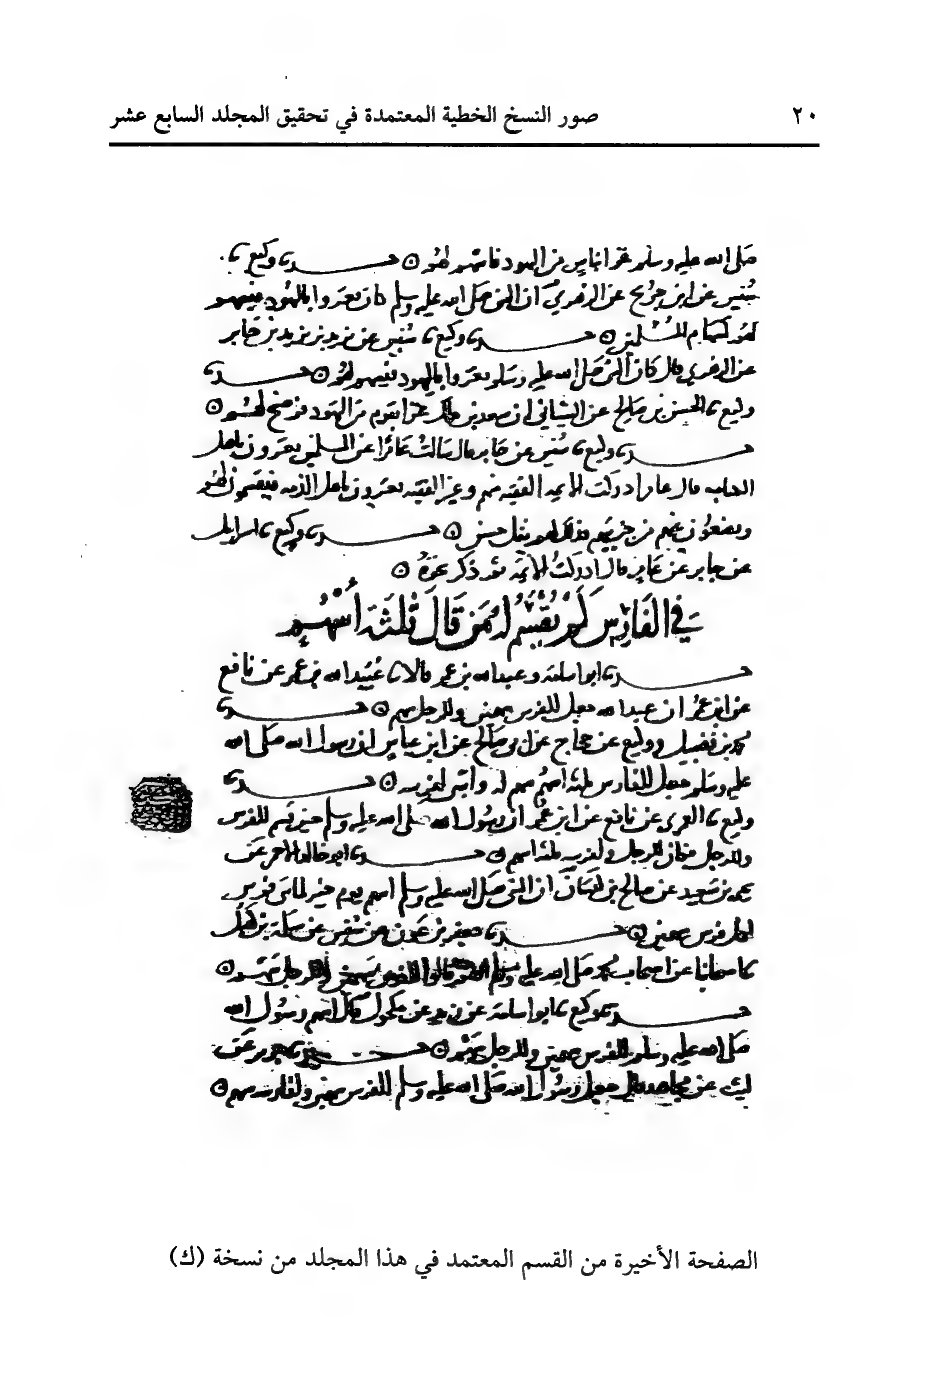 ٢٠ صور النسخ الخطية المعتمدة في تحقيق المجلد السابع عشر
صلى الله عليه وسلم غزا بناس من اليهود فاسهم لهم حدثنا وكيع نا
سفين عن ابن جريج عن الزهري ان النبي صلى الله عليه وسلم كان يغزوا باليهود فيسهم
لهم كسهام المسلمين حدثنا وكيع نا سفين عن يزيد بن يزيد بن جابر
عن الزهري قال كان النبي صلى الله عليه وسلم يغزوا باليهود فيسهم لهم حدثنا
وكيع نا الحسن بن صالح عن الشيباني ان سعد بن مالك غزا بقوم من اليهود فرضخ لهم
حدثنا وكيع نا سفين عن جابر قال سالت عامرا عن المسلمين يغزون باهل
الكتاب قال عامر ادركت الائمة الفقيه منهم وغير الفقيه يغزون باهل الذمة فيقسمون لهم
ويضعون عنهم من جزيتهم فذلك لهم نفل حسن حدثنا وكيع نا اسرايل
عن جابر عن عامر قال ادركت الائمة ثم ذكر نحوه
في الفارس كم يقسم له من قال ثلثة أسهم
حدثنا ابو اسامة وعبدالله بن نمير قالا نا عبيد الله بن عمر عن نافع
عن ابن عمر ان جعل للفرس سهمين وللرجل سهم حدثنا
محمد بن فضيل ووكيع عن حجاج عن ابي صالح عن ابن عباس ان رسول الله صلى الله
عليه وسلم جعل للفارس ثلثة اسهم سهم له واثنين لفرسه حدثنا
وكيع نا العمري عن نافع عن ابن عمر ان رسول الله صلى الله عليه وسلم حين قسم للفرس
وللرجل فكان للرجل ولفرسه ثلثة اسهم حدثنا ابو خالد الاحمر عن
يحيى بن سعيد عن صالح بن كيسان ان النبي صلى الله عليه وسلم اسهم يوم خيبر لمائتي فرس
لكل فرس سهمين حدثنا جعفر بن عون عن سفين عن سلمة بن كهيل
نا اصحابنا عن اصحاب محمد صلى الله عليه وسلم قالوا للفرس سهمين وللرجل سهم
حدثنا وكيع نا ابو اسامة عن عن مكحول قال اسهم رسول الله
صلى الله عليه وسلم للفرس سهمين وللرجل سهم حدثنا جرير عن
ليث عن مجاهد قال جعل رسول الله صلى الله عليه وسلم للفرس سهمين ولفارسه سهم
الصفحة الأخيرة من القسم المعتمد في هذا المجلد من نسخة (ك)